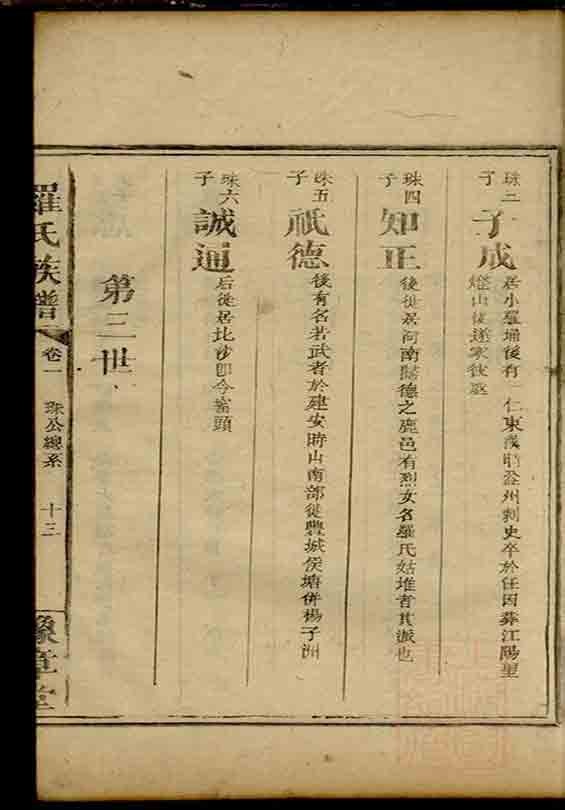 珠二子
子成
居小羅塘後有一仁東漢時益州刺史卒於任因葬江陽里
燈山後遂家
珠四子
知正
後徙居河南歸德之鹿邑有烈女名羅氏姑堆者其派也
珠五子
祇德
後有名若武者於建安時由南部徙豐城侯塘併楊子洲
珠六子
誠通
后徙居北沙即今窰頭
第三世
羅氏族譜
卷一
珠公總系
十三
豫章堂